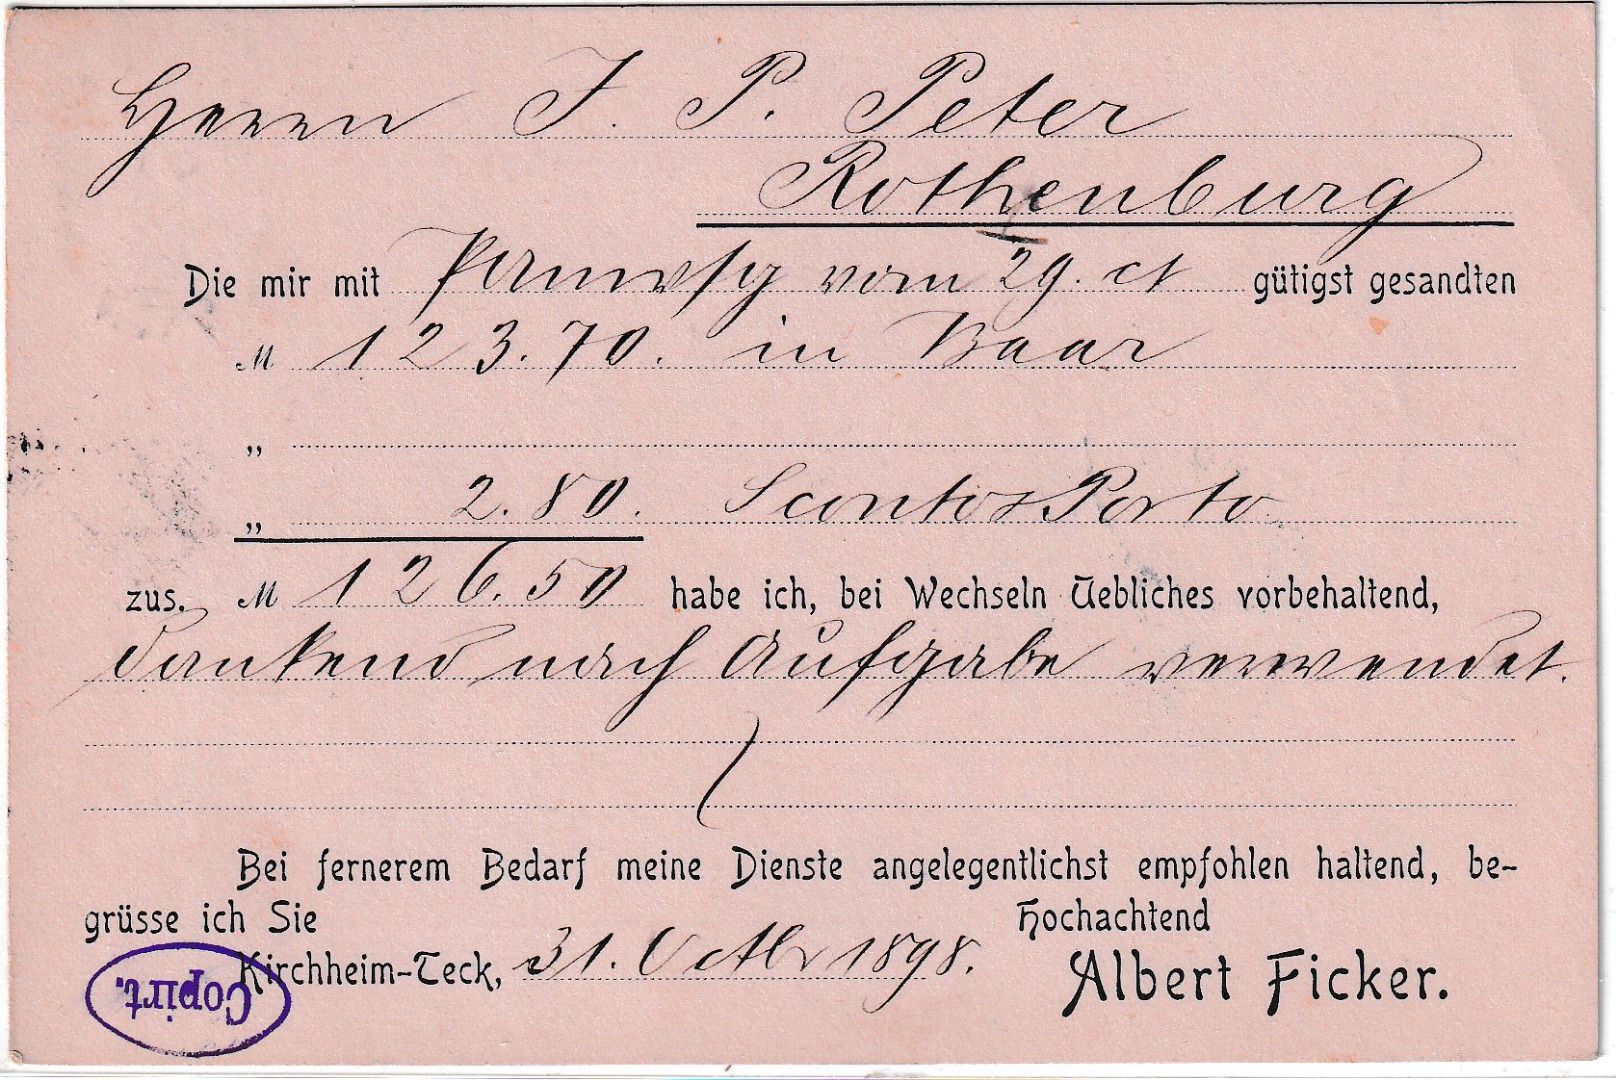 Herrn J. P. Peter
Rothenburg
Die mir mit vom 29. ct gütigst gesandten
M 123.70. in Baar
„
„ 2.80. Sconto & Porto
zus. M 126.50 habe ich, bei Wechseln Uebliches vorbehaltend,
dankend nach Aufgabe verwendet.
Bei fernerem Bedarf meine Dienste angelegentlichst empfohlen haltend, be-
grüsse ich Sie Hochachtend
Kirchheim-Teck, 31. Octbr 1898. Albert Ficker.
Copirt.